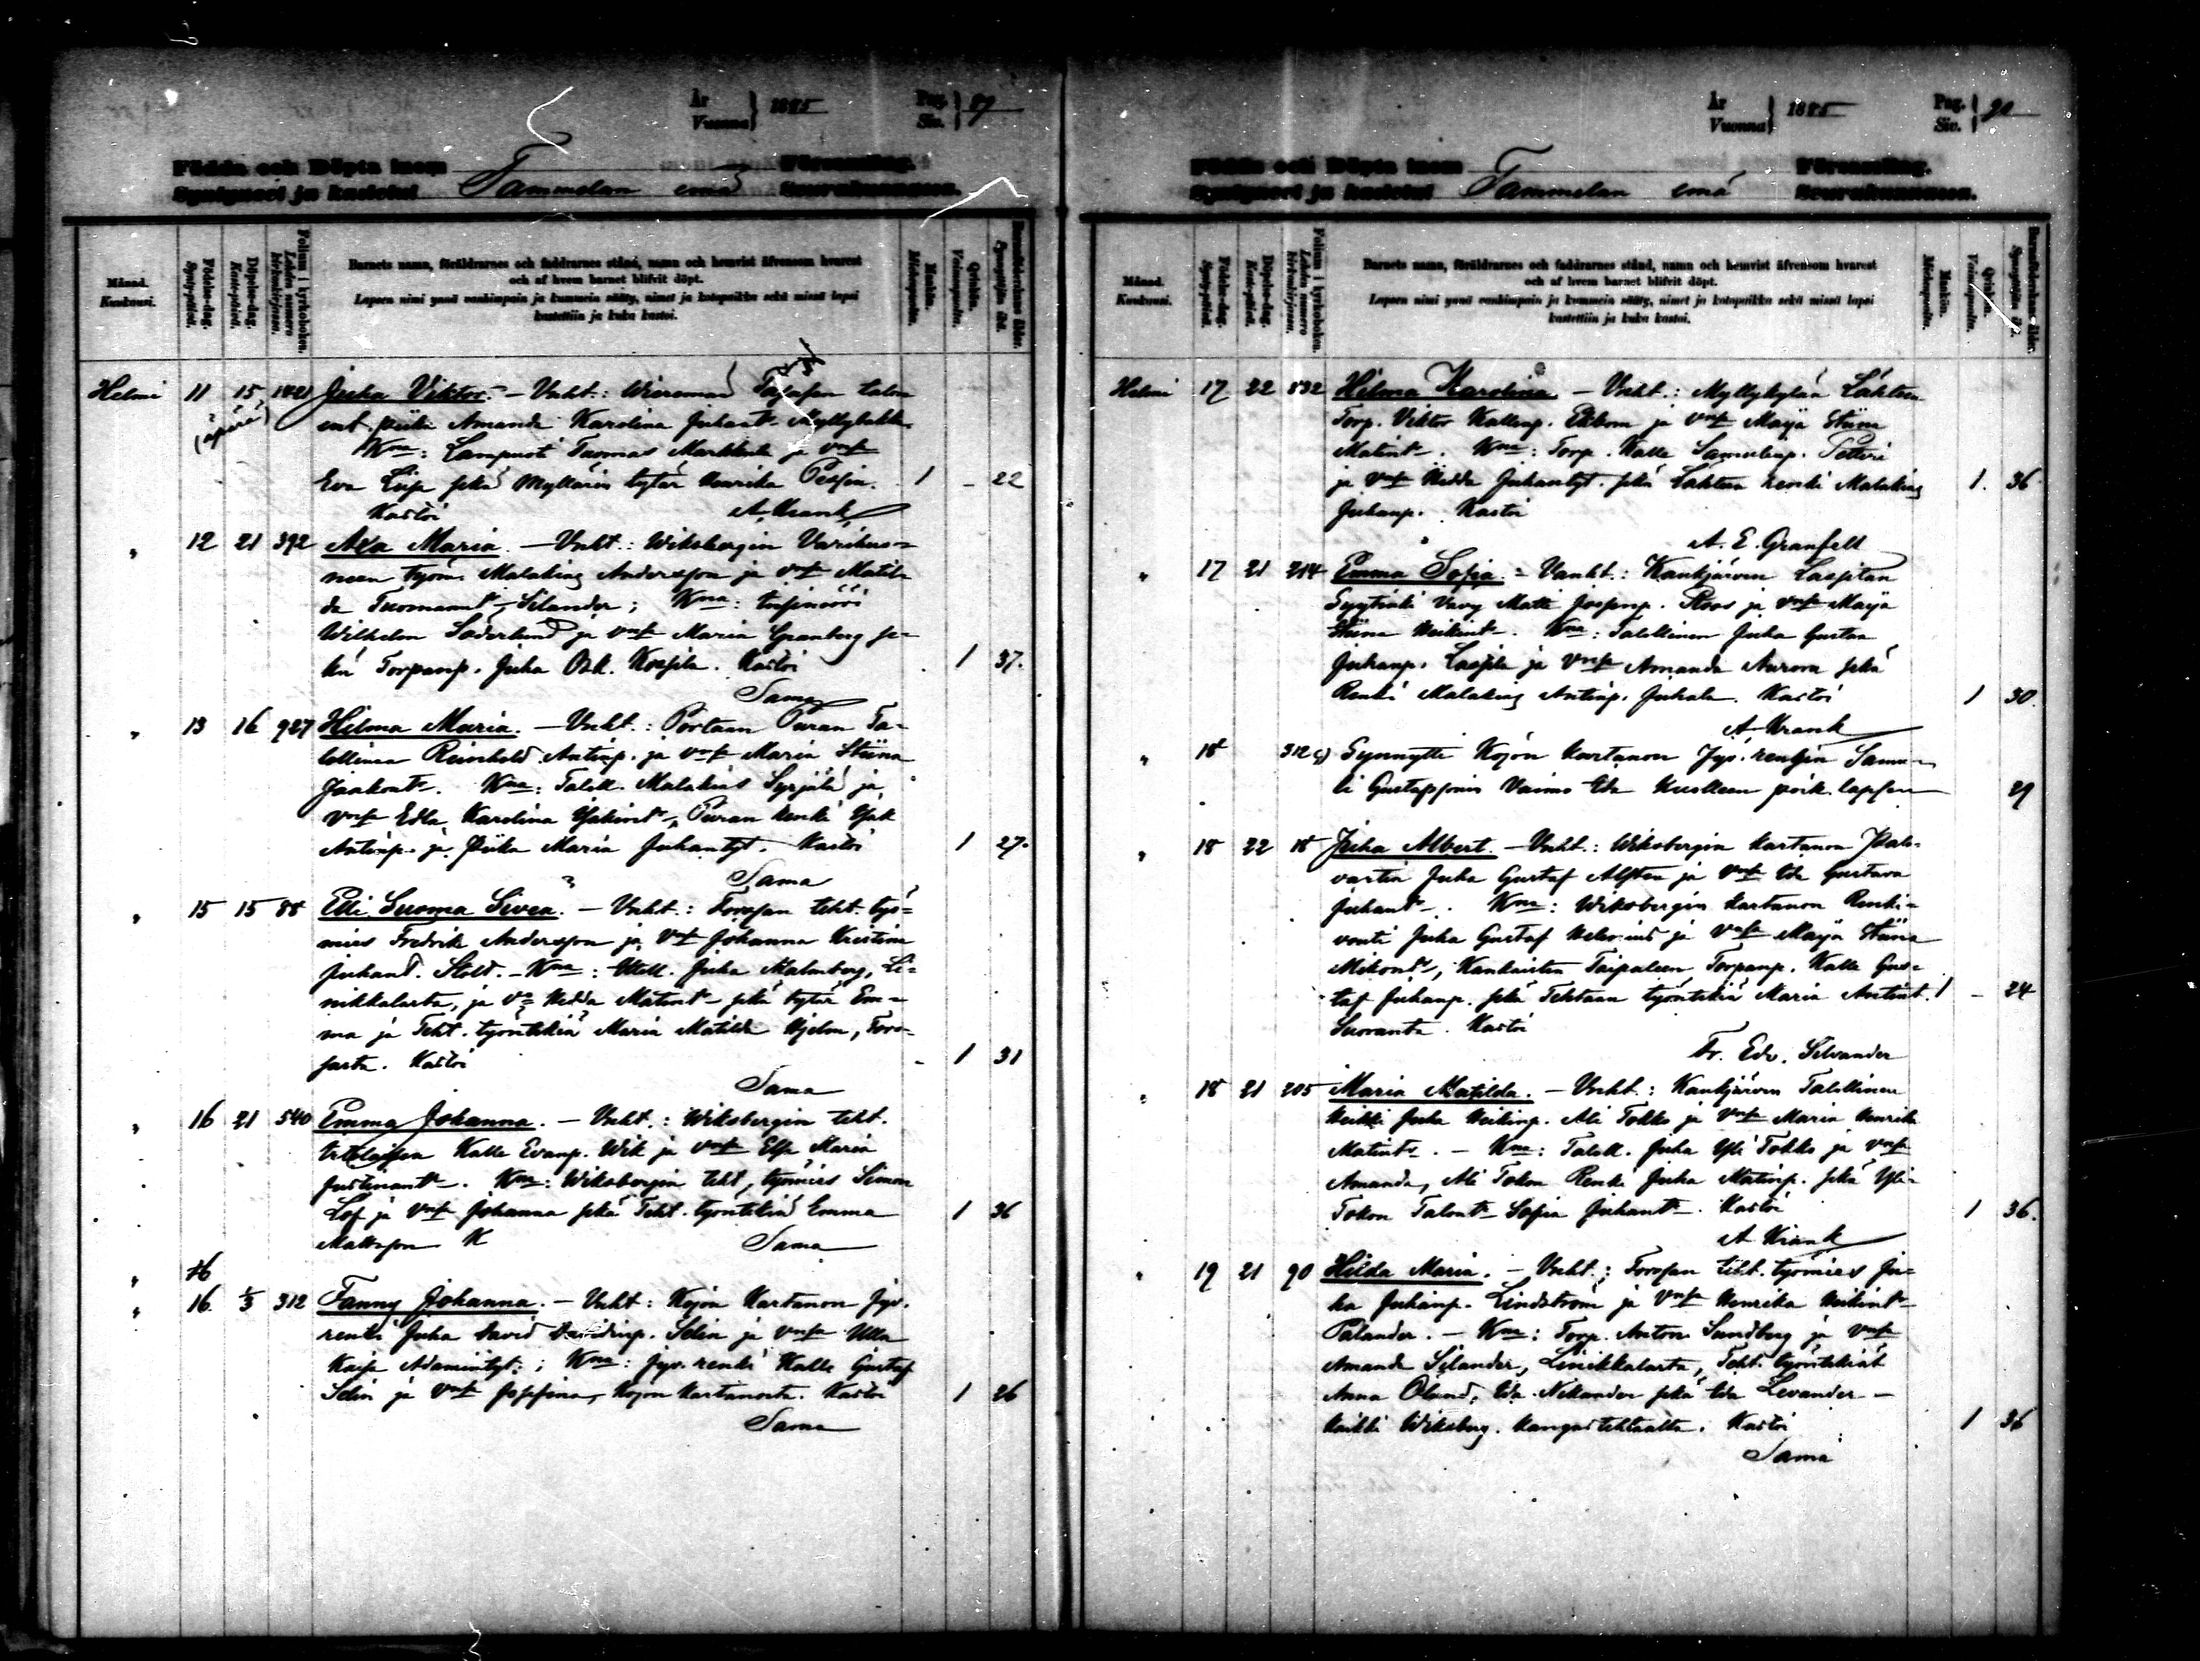 År
Vuonna } 1885
Pag.
Siv. } 89
Födda och Döpta inom Församling.
Syntyneet ja kastetut Tammelan emä Seurakunnassa.
Månad.
Kuukausi.
Födelse-dag.
Synty-päivä.
Döpelse-dag.
Kaste-päivä.
Folium i kyrkoboken.
Lehden numero kirkonkirjassa.
Barnets namn, föräldrarnes och faddrarnes stånd, namn och hemvist äfvensom hvarest
och af hvem barnet blifvit döpt.
Lapsen nimi ynnä vanhimpain ja kummein sääty, nimet ja kotopaikka sekä missä lapsi
kastettiin ja kuka kastoi.
Mankön.
Miehenpuolta.
Qvinkön.
Vaimonpuolta.
Barnaföderskans ålder.
Synnyttäjän ikä.
Helmi 11 15 1421 Juha Viktor. - Vnht: talon
(äpärä) ent. piika Amanda Karolina Juhant.
Kmt: Lampuoti Tuomas Markkula ja vmsa
Eva Liisa sekä Myllärin tytär Henrika 1 - 22
Kastoi A. Krank
" 12 21 392 Maria. - Vnht.: Wiksbergin
työm. Malakias Andersson ja vmsa Matil-
da Tuomaant. Silander; Kmt:
Wilhelm Söderlund ja vmsa Maria Granberg se-
kä Torpanp. Juha Osk. Kossila. Kastoi 1 37.
Sama
" 13 16 927 Hilma Maria. - Vnht.: Portaan Puran Ta-
lollinen Reinhold Antinp. ja vmsa Maria Stiina
Jaakont. Kmt: Talll. Malakias Syrjälä ja
vmsa Edla Karolina Isakint., Puran Renki Isak
Antinp. ja Piika Maria Juhantyt. Kastoi 1 27.
Sama
" 15 15 88 Elli Suoma Sivea. - Vnht.: Forssan teht. työ-
mies Fredrik Andersson ja Vm Johanna Kristiina
Juhant. Stold. - Kmt: Juha Malmberg, Li-
nikkalasta, ja Vm Hedda Matint. sekä tytär Em-
ma ja Teht. työntekiä Maria Matilda Hjelm, Fors-
sasta. Kastoi - 1 31
Sama
" 16 21 540 Emma Johanna. - Vnht.: Wiksbergin teht.
Kalle Evanp. Wik ja vmsa Elsa Maria
Justinant. Kmt: Wiksbergin teht. työmies Simon
Löf ja vmsa Johanna sekä Teht. työntekiä Emma 1 36
Mattsson K Sama
" 16
" 16 1/3 312 Fanny Johanna. - Vnht: Kojon Kartanon Jyv.
renki Juha David Davidinp. Selin ja vmsa Ulla
Kaisa Adamintyt.; Kmt: Jyv. renki Kalle Gustaf
Selin ja vmsa Josefina, Kojon Kartanosta. Kastoi 1 26
Sama
År
Vuonna } 1885
Pag.
Siv. } 90
Födda och Döpta inom Församling.
Syntyneet ja kastetut Tammelan emä Seurakunnassa.
Månad.
Kuukausi.
Födelse-dag.
Synty-päivä.
Döpelse-dag.
Kaste-päivä.
Folium i kyrkoboken.
Lehden numero kirkonkirjassa.
Barnets namn, föräldrarnes och faddrarnes stånd, namn och hemvist äfvensom hvarest
och af hvem barnet blifvit döpt.
Lapsen nimi ynnä vanhimpain ja kummein sääty, nimet ja kotopaikka sekä missä lapsi
kastettiin ja kuka kastoi.
Mankön.
Miehenpuolta.
Qvinkön.
Vaimonpuolta.
Barnaföderskans ålder.
Synnyttäjän ikä.
Helmi 17 22 832 Hilma Karolina - Vnht.: Myllykylän Lahtisen
Torp. Viktor Kallenp. Ekbom ja vmsa Maija Stiina
Matint. Kmt: Torp. Kalle Samulinp. Petteri
ja vmsa Hedda Juhantyt. sekä Lahtisen renki Malakias 1. 36
Juhanp. Kastoi
A. E. Granfelt
" 17 21 214 Emma Sofia. - Vanht.: Kaukjärven Lassilan
Syytinki Vävy Matti Josepinp. Roos ja vmsa Maija
Stiina Heikint. Kmt: Talollinen Juha Gustaa
Juhanp. Lassila ja vmsa Amanda Aurora sekä
Renki Malakias Antinp. Juhala. Kastoi 1 30.
A. Krank
" 18 312 Synnytti Kojon Kartanon Jyv. rengin Samu-
li Gustafssonin Vaimo Ida kuolleen poik. lapsen 29
" 18 22 18 Juha Albert. - Vnht.: Wiksbergin Kartanon Palo-
vartia Juha Gustaf Alften ja vmsa Ida Gustava
Juhant. Kmt: Wiksbergin Kartanon Renki-
vouti Juha Gustaf ja vmsa Maija Stiina
Mikont., Kankaisten Taipaleen Torpanp. Kalle Gus-
taf Juhanp. sekä Tehtaan työntekiä Maria Antint. 1 - 24
Suoranta. Kastoi
Fr. Edv. Selvander
" 18 21 205 Maria Matilda. - Vnht.: Kaukjärven Talollinen
Heikki Juha Heikinp. Ali Tokko ja vmsa Maria Henrika
Matint. - Kmt: Talll. Juha Yli Tokko ja vmsa
Amanda, Ali Tokon Renki Juha Matinp. sekä Yli-
Tokon Talont. Sofia Juhant. Kastoi 1 36.
A Krank
" 19 21 90 Hilda Maria. - Vnht.: Forssan teht. työmies Ju-
ha Juhanp. Lindström ja vmsa Henrika Heikint.
Palander. - Kmt: Torp. Anton Sundberg ja vmsa
Amanda Silander, Linikkalasta, Teht. työntekiät
Anna Ölund, Ida Nikander sekä Ida Levander -
kaikki Wiksberg. kangastehtaalta. Kastoi 1 36
Sama